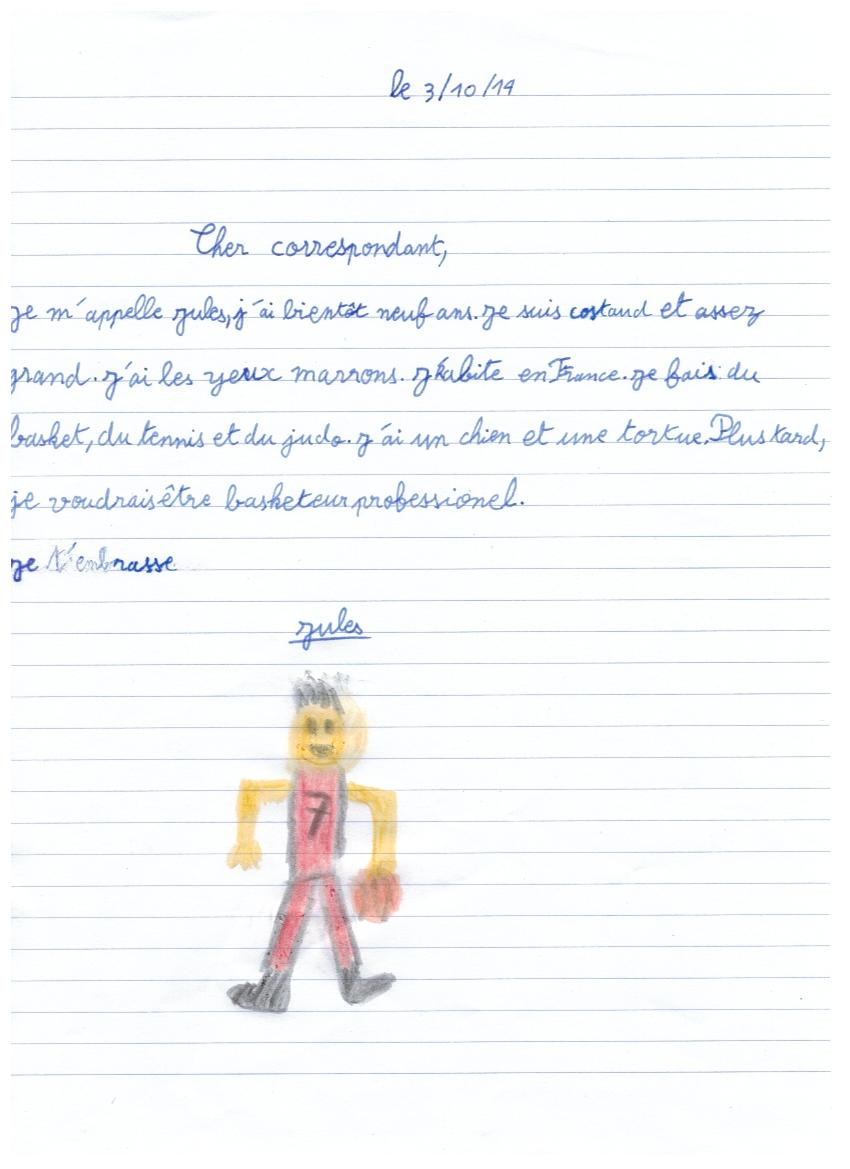 le 3/10/14
Cher correspondant,
Je m'appelle Jules, j'ai bientôt neuf ans. Je suis costaud et assez
grand. J'ai les yeux marrons. J'habite en France. Je fais du
basket, du tennis et du judo. J'ai un chien et une tortue. Plus tard,
je voudrais être basketeur professionel.
Je t'embrasse
Jules
7